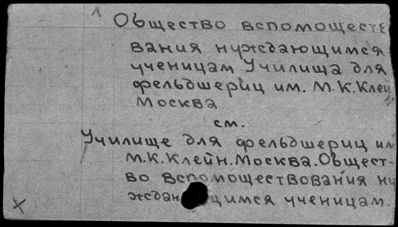 Общество вспомощест
вания нуждающимся
ученицам Училища для
фельдшериц им. М.К.Клей
Москва
см.
Училище для фельдшериц им
М.К.Клейн.Москва.Общест-
во вспомоществования ну
ждающимся ученицам.